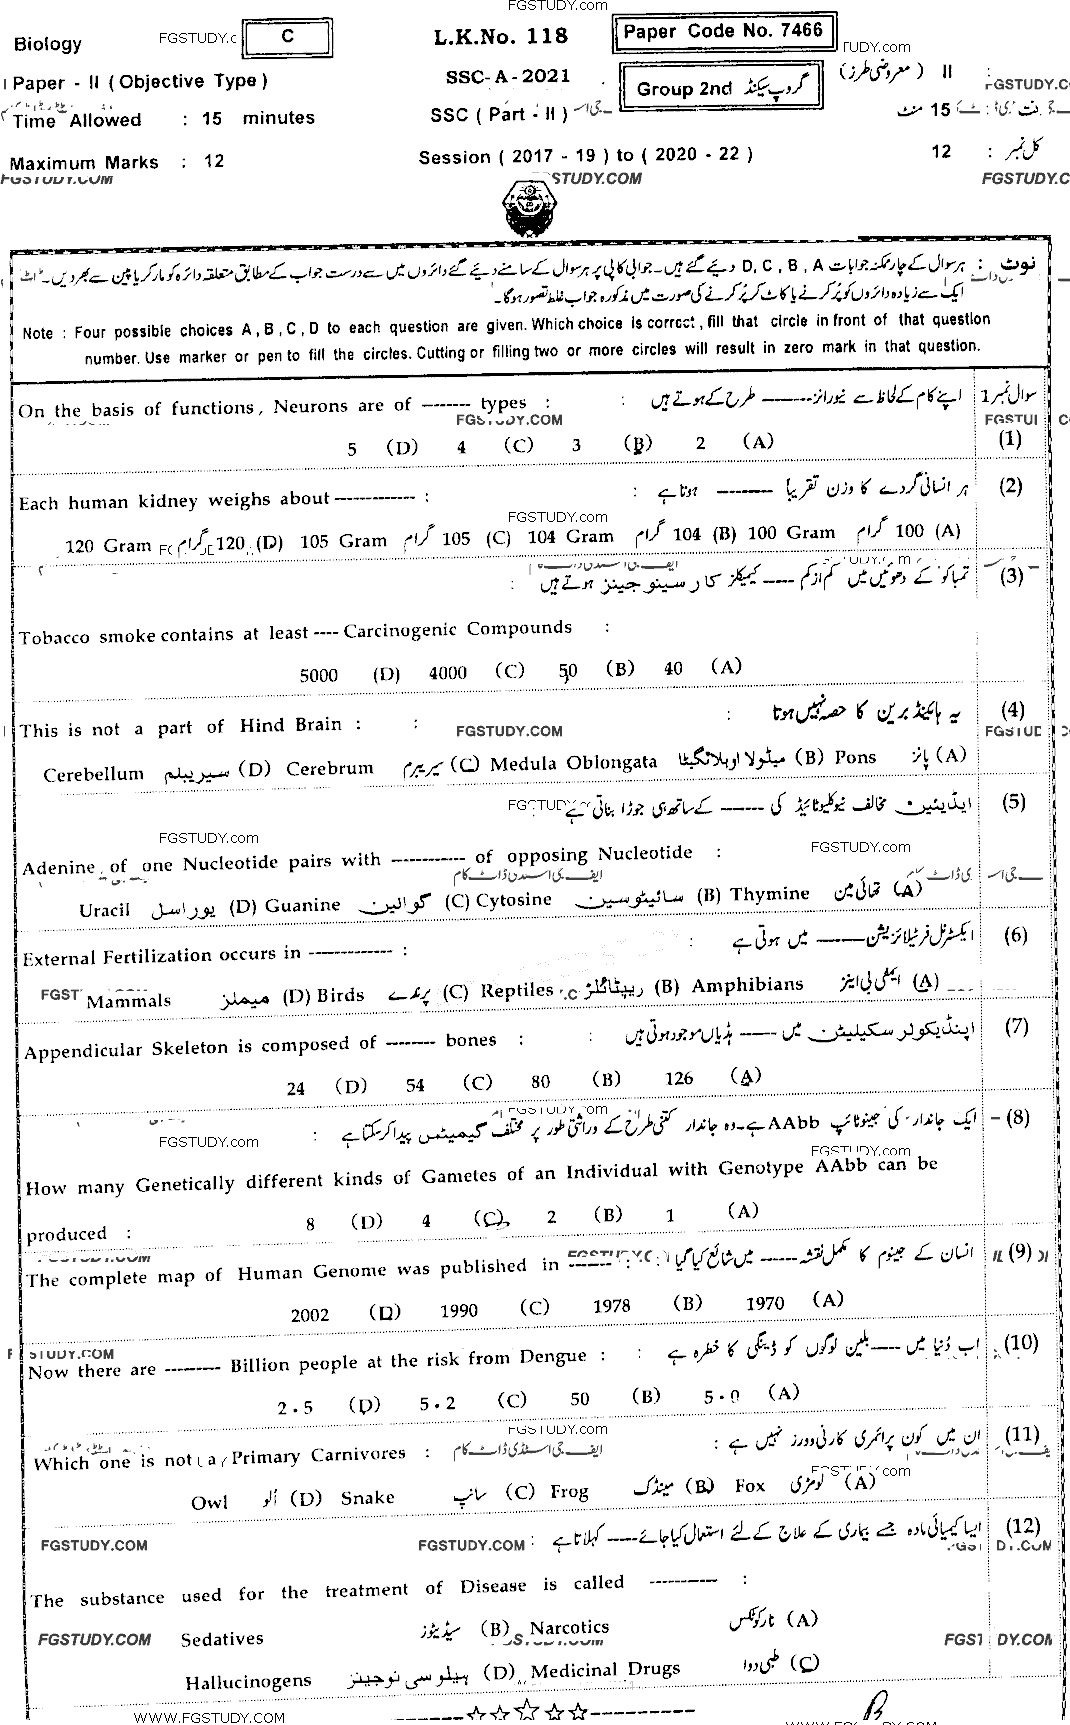 FGSTUDY.com
Biology
C
L.K.No. 118
Paper Code No. 7466
Paper - II ( Objective Type )
SSC-A-2021
Group 2nd گروپ سیکنڈ
II ( معروضی طرز )
Time Allowed : 15 minutes
SSC ( Part - II )
15 منٹ
Maximum Marks : 12
Session ( 2017 - 19 ) to ( 2020 - 22 )
12 : کل نمبر
FGSTUDY.COM
نوٹ : ہر سوال کے چار ممکنہ جوابات D , C , B , A دیئے گئے ہیں۔ جوابی کاپی پر ہر سوال کے سامنے دیئے گئے دائروں میں سے درست جواب کے مطابق متعلقہ دائرہ کو مارکر یا پین سے بھر دیں۔
ایک سے زیادہ دائروں کو پُر کرنے یا کاٹ کر پُر کرنے کی صورت میں مذکورہ جواب غلط تصور ہوگا۔
Note : Four possible choices A , B , C , D to each question are given. Which choice is correct , fill that circle in front of that question
number. Use marker or pen to fill the circles. Cutting or filling two or more circles will result in zero mark in that question.
سوال نمبر 1 اپنے کام کے لحاظ سے نیورانز ------- طرح کے ہوتے ہیں :
On the basis of functions, Neurons are of ------- types :
(1)
5 (D) 4 (C) 3 (B) 2 (A)
(2) ہر انسانی گردے کا وزن تقریباً -------- ہوتا ہے :
Each human kidney weighs about ------------ :
120 Gram گرام 120 (D) 105 Gram گرام 105 (C) 104 Gram گرام 104 (B) 100 Gram گرام 100 (A)
(3) تمباکو کے دھوئیں میں کم از کم ---- کیمیکلز کارسینوجینز ہوتے ہیں :
Tobacco smoke contains at least ---- Carcinogenic Compounds :
5000 (D) 4000 (C) 50 (B) 40 (A)
(4) یہ ہائنڈ برین کا حصہ نہیں ہوتا :
This is not a part of Hind Brain :
Cerebellum سیریبلم (D) Cerebrum سیریبرم (C) Medula Oblongata میڈولا اوبلانگیٹا (B) Pons پانز (A)
(5) ایڈینین مخالف نیوکلیوٹائیڈ کی ------ کے ساتھ ہی جوڑا بناتی ہے :
Adenine of one Nucleotide pairs with ----------- of opposing Nucleotide :
Uracil یوراسل (D) Guanine گوانین (C) Cytosine سائیٹوسین (B) Thymine تھائی مین (A)
(6) ایکسٹرنل فرٹیلائزیشن ------ میں ہوتی ہے :
External Fertilization occurs in ------------- :
Mammals میملز (D) Birds پرندے (C) Reptiles ریپٹائلز (B) Amphibians ایمفی بی اینز (A)
(7) اپنڈیکولر سکیلیٹن میں ------ ہڈیاں موجود ہوتی ہیں :
Appendicular Skeleton is composed of -------- bones :
24 (D) 54 (C) 80 (B) 126 (A)
(8) ایک جاندار کی جینوٹائپ AAbb ہے۔ وہ جاندار کتنی طرح کے وراثتی طور پر مختلف گیمیٹس پیدا کرسکتا ہے :
How many Genetically different kinds of Gametes of an Individual with Genotype AAbb can be
produced :
8 (D) 4 (C) 2 (B) 1 (A)
(9) انسان کے جینوم کا مکمل نقشہ ----- میں شائع کیا گیا :
The complete map of Human Genome was published in ------- :
2002 (D) 1990 (C) 1978 (B) 1970 (A)
(10) اب دُنیا میں ----- بلین لوگوں کو ڈینگی کا خطرہ ہے :
Now there are --------- Billion people at the risk from Dengue :
2.5 (D) 5.2 (C) 50 (B) 5.0 (A)
(11) ان میں کون پرائمری کارنی وورز نہیں ہے :
Which one is not a Primary Carnivores :
Owl اُلو (D) Snake سانپ (C) Frog مینڈک (B) Fox لومڑی (A)
(12) ایسا کیمیائی مادہ جسے بیماری کے علاج کے لئے استعمال کیا جائے ---- کہلاتا ہے :
FGSTUDY.COM
The substance used for the treatment of Disease is called ---------- :
Sedatives سیڈیٹوز (B) Narcotics نارکوٹکس (A)
FGSTUDY.COM
Hallucinogens ہیلوسی نوجینز (D) Medicinal Drugs طبی دوا (C)
WWW.FGSTUDY.COM